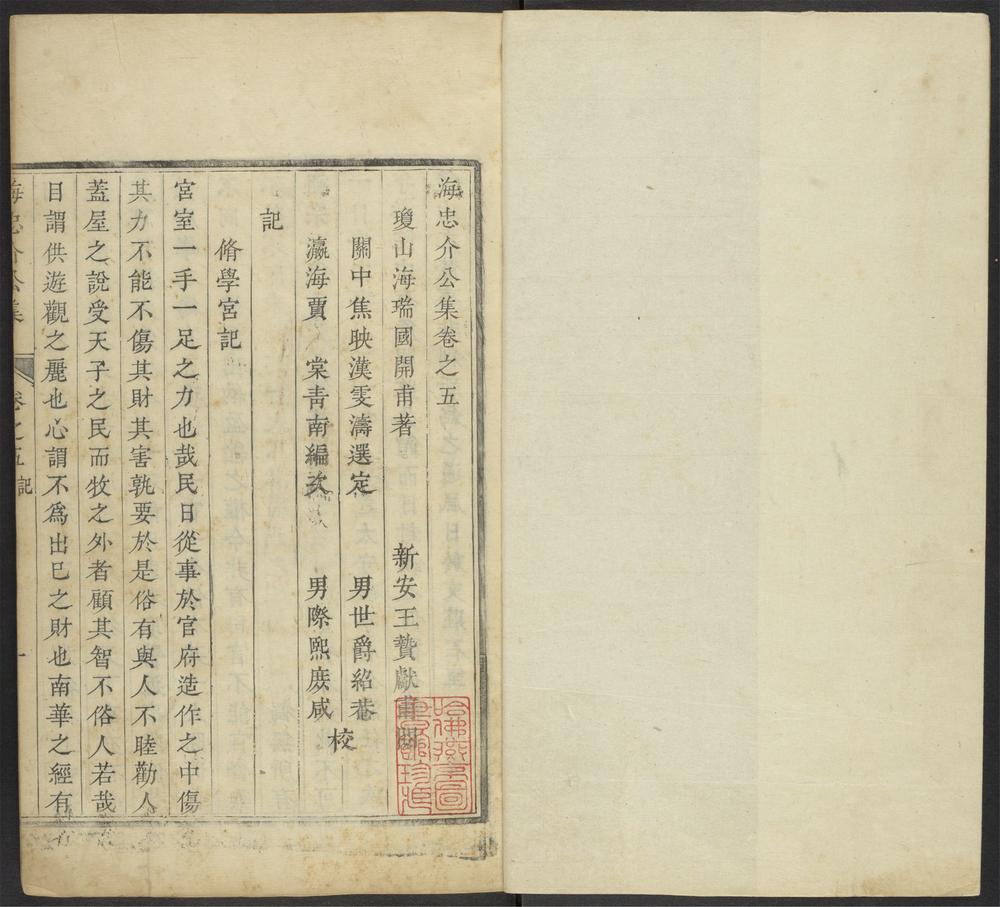 海忠介公集卷之五
瓊山海瑞國開甫著　新安王贊獻甫閱
關中焦映漢雯濤選定　男世爵紹菴
瀛海賈　棠青南編次　男際熙庶咸
校
記
脩學宮記
宮室一手一足之力也哉民日從事於官府造作之中傷
其力不能不傷其財其害孰要於是俗有與人不睦勸人
蓋屋之說受天子之民而牧之外者顧其智不俗人若哉
目謂供遊觀之麗也心謂不爲出巳之財也南華之經有
海忠介公集
卷之五 記
一
哈佛燕京圖
書館珍藏